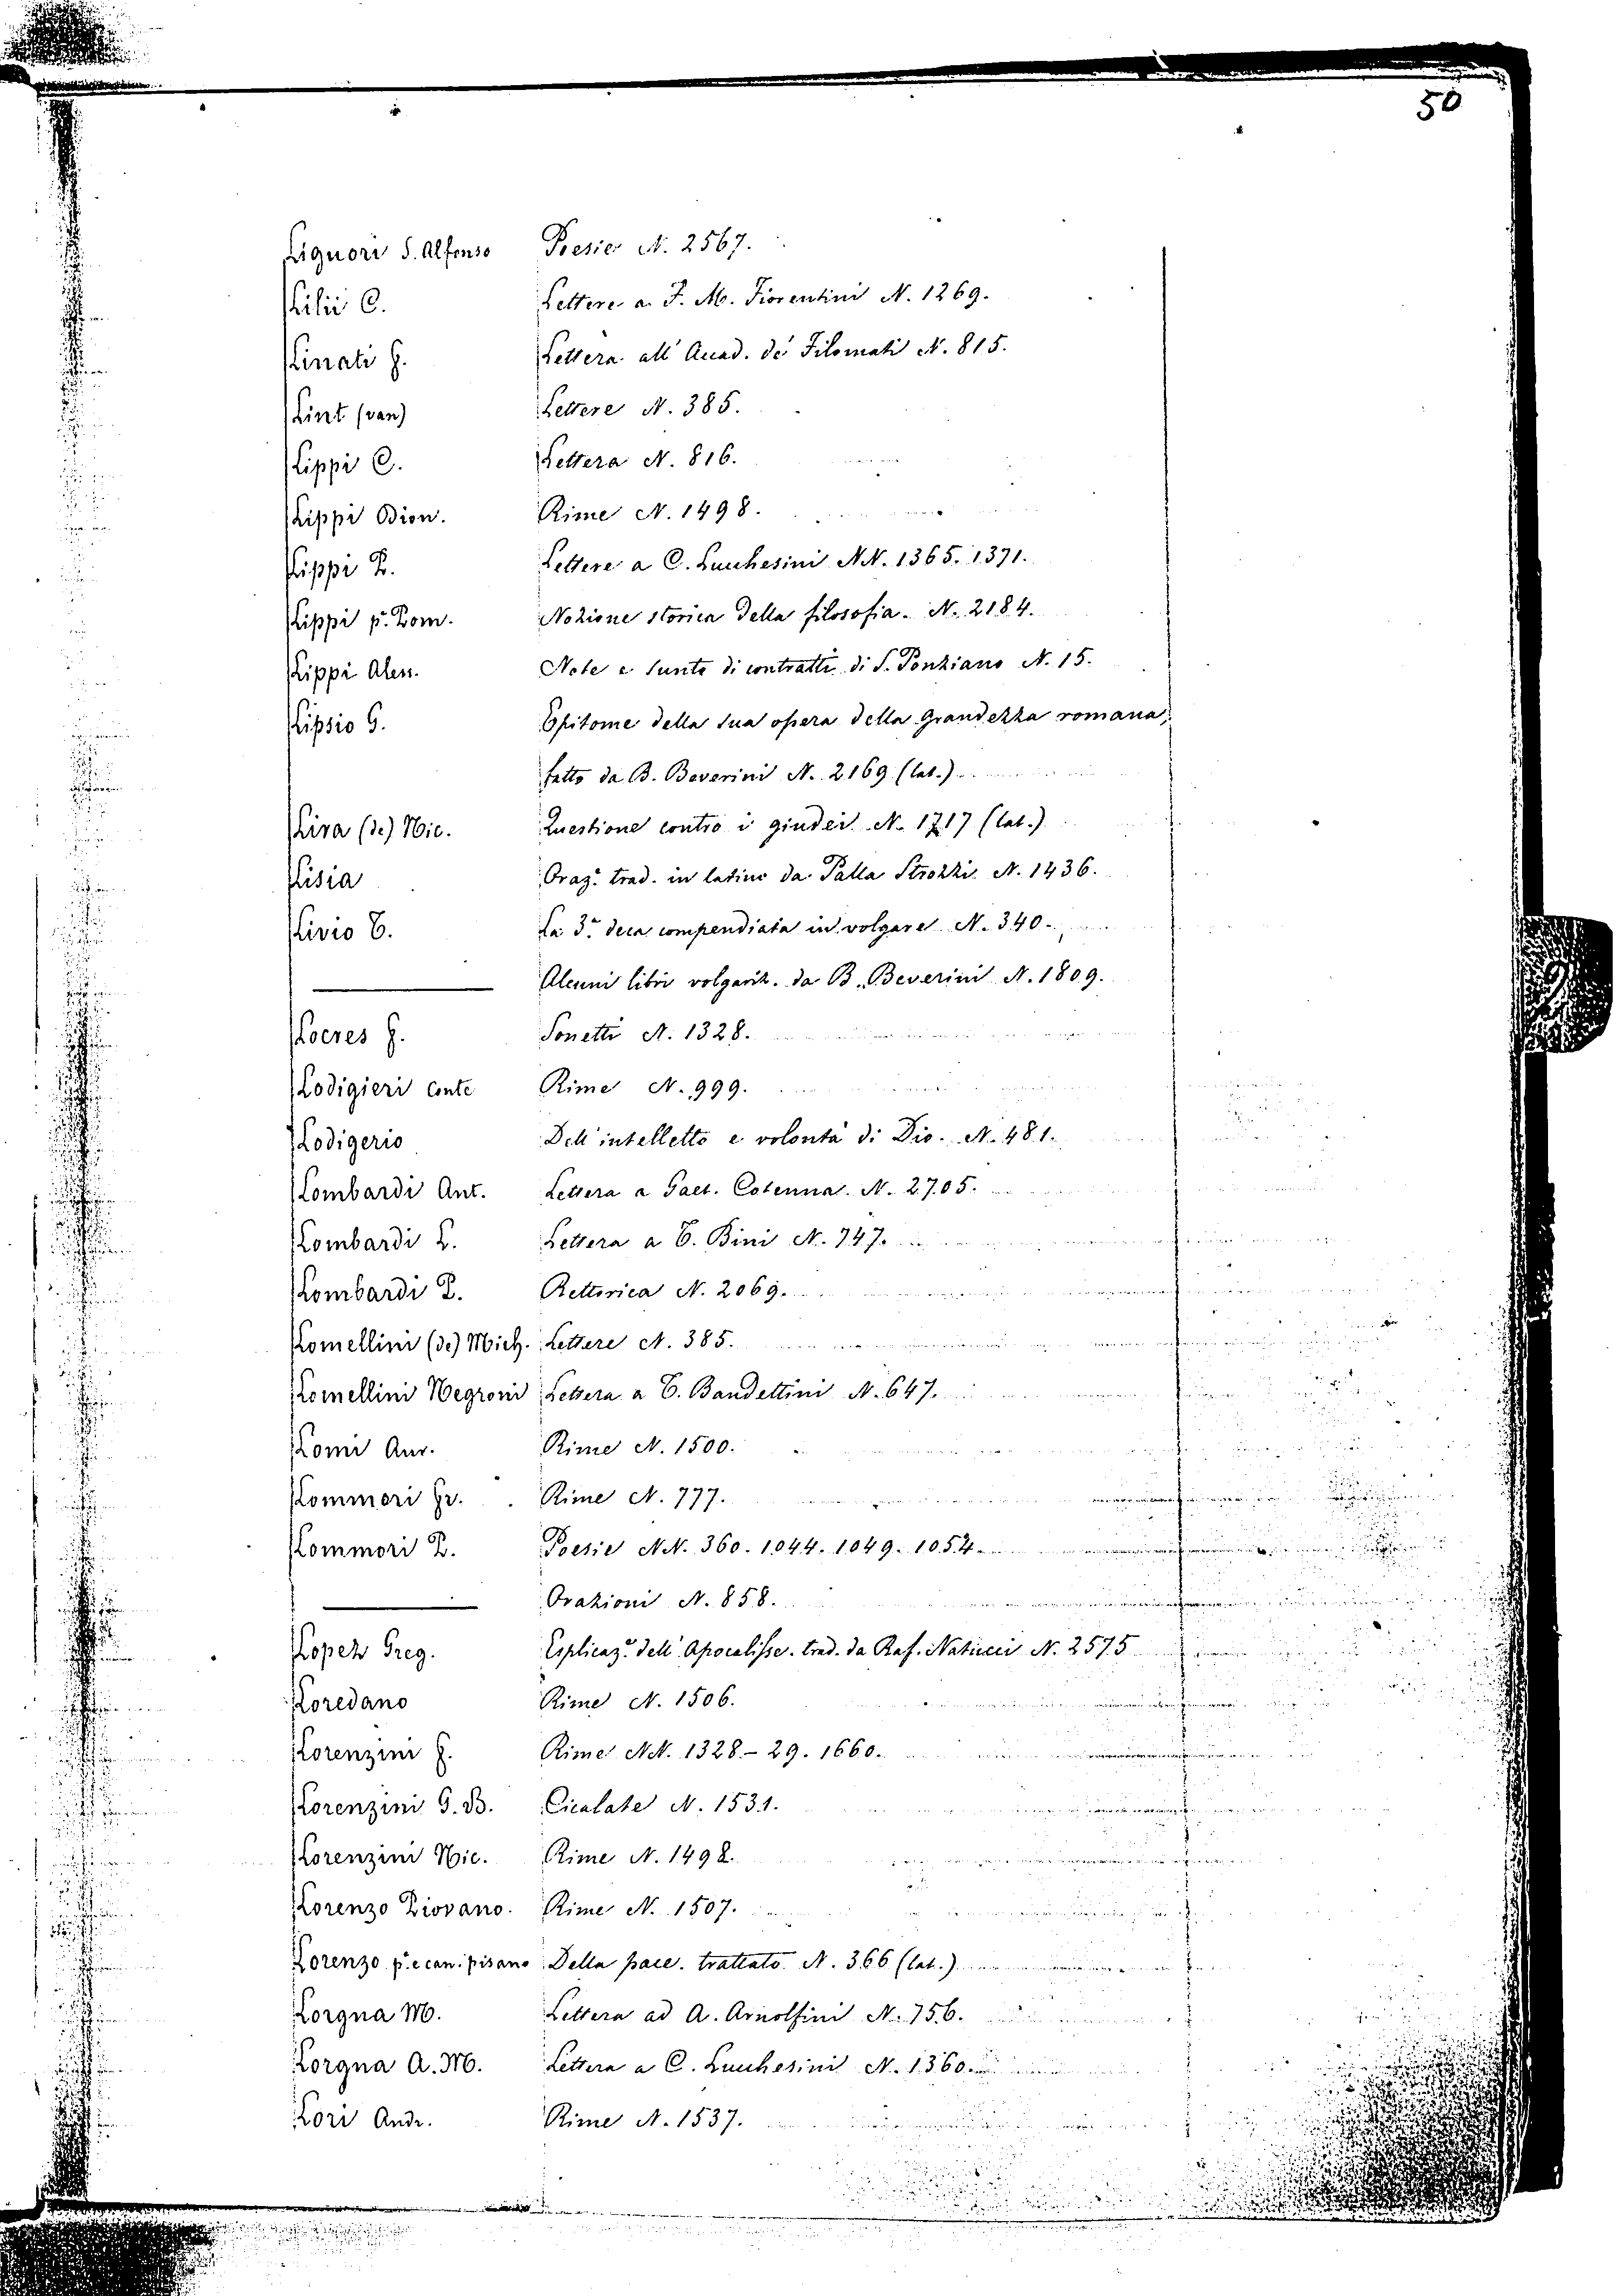 50
Liguori S. Alfonso Poesie N. 2567.
Lilii C. Lettere a F. M. Fiorentini N. 1269.
Linati F. Lettera all' Accad. de' Filomati N. 815.
Lint (van) Lettere N. 385.
Lippi C. Lettera N. 816.
Lippi Dion. Rime N. 1498.
Lippi P. Lettere a C. Lucchesini NN. 1365. 1371.
Lippi p. Dom. Nozione storica della filosofia. N. 2184.
Lippi Aless. Note e sunto di contratti di S. Ponziano N. 15.
Lipsio G. Epitome della sua opera della Grandezza romana,
fatto da B. Beverini N. 2169 (lat.)
Lira (de) Nic. Questione contro i giudei N. 1717 (lat.)
Lisia Oraz.e trad. in latino da Palla Strozzi N. 1436.
Livio T. La 3.a deca compendiata in volgare N. 340.
——— Alcuni libri volgariz. da B. Beverini N. 1809.
Loeres F. Sonetti N. 1328.
Lodigieri Conte Rime N. 999.
Lodigerio Dell' intelletto e volontà di Dio. N. 481.
Lombardi Ant. Lettera a Gaet. Cotenna. N. 2705.
Lombardi L. Lettera a T. Bini N. 747.
Lombardi P. Rettorica N. 2069.
Lomellini (de) Mich. Lettere N. 385.
Lomellini Negroni Lettera a T. Bandettini N. 647.
Lomi Aur. Rime N. 1500.
Lommori Fr. Rime N. 777.
Lommori P. Poesie NN. 360. 1044. 1049. 1054.
——— Orazioni N. 858.
Lopez Greg. Esplicaz.e dell' Apocalisse. trad. da Raf. Natucci N. 2575
Loredano Rime N. 1506.
Lorenzini F. Rime NN. 1328.-29. 1660.
Lorenzini G. B. Cicalate N. 1531.
Lorenzini Nic. Rime N. 1498.
Lorenzo Piovano. Rime N. 1507.
Lorenzo p.e can. pisano Della pace. trattato N. 366 (lat.)
Lorgna M. Lettera ad A. Arnolfini N. 756.
Lorgna A. M. Lettera a C. Lucchesini N. 1360.
Lori Andr. Rime N. 1537.